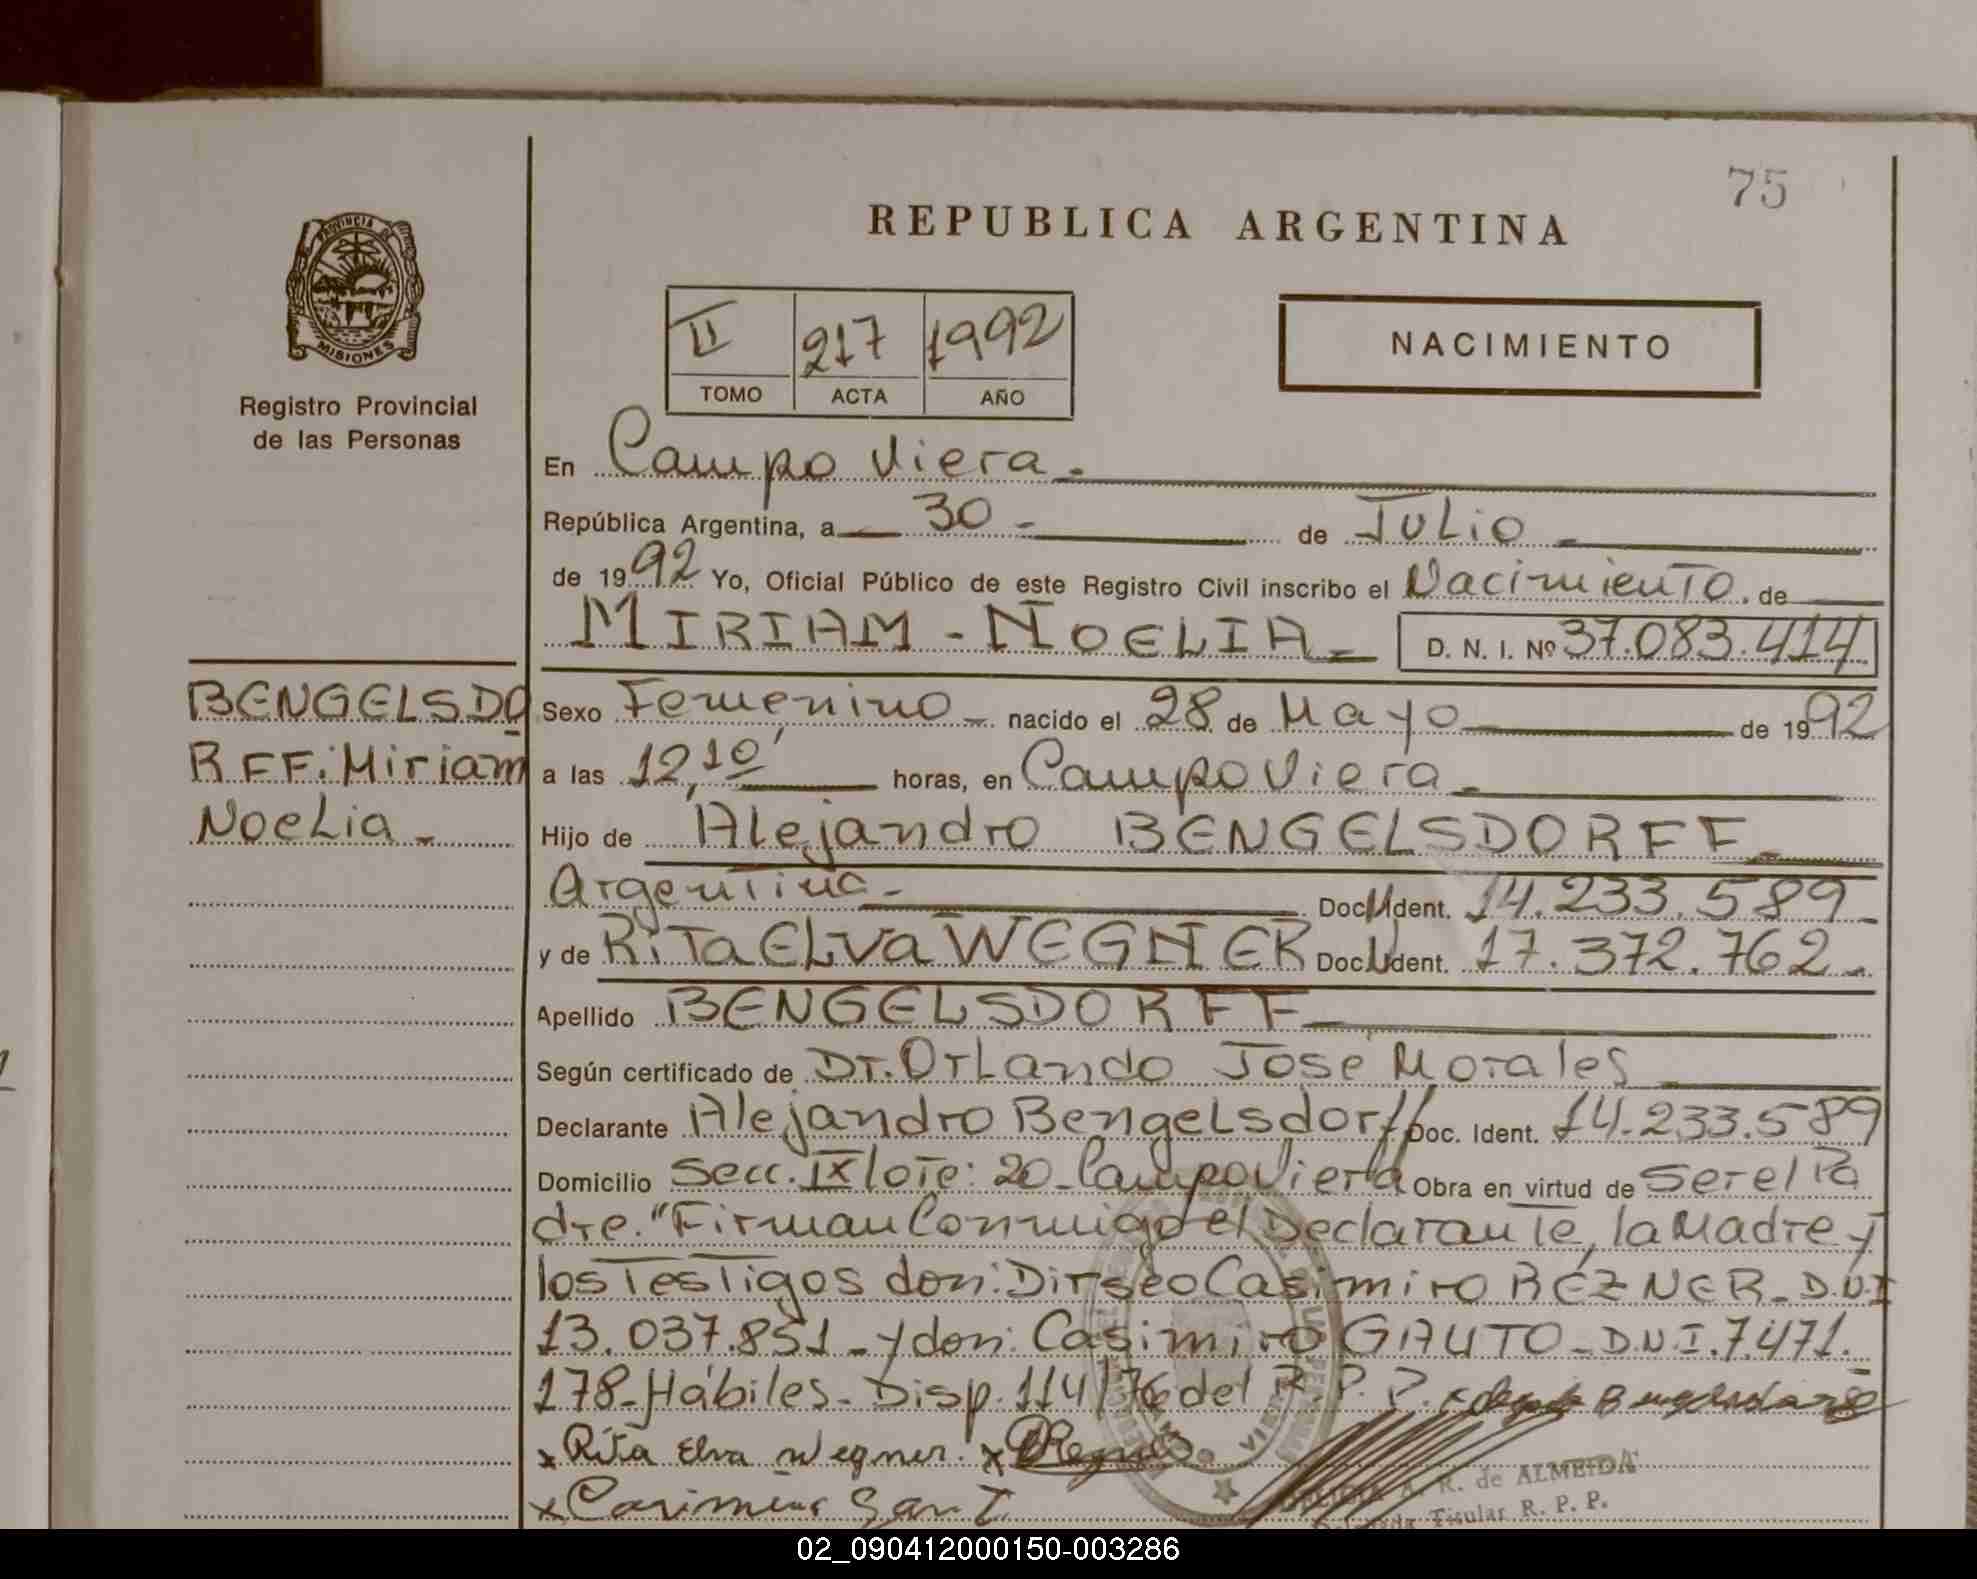 75
REPUBLICA ARGENTINA
PROVINCIA DE
MISIONES
Registro Provincial
de las Personas
II 217 1992
TOMO ACTA AÑO
NACIMIENTO
En Campo Viera.
República Argentina, a 30 - de Julio
de 1992 Yo, Oficial Público de este Registro Civil inscribo el Nacimiento. de
MIRIAM - NOELIA - D. N. I. Nº 37.083.414
BENGELSDO
RFF: Miriam
Noelia -
Sexo Femenino - nacido el 28 de Mayo de 1992
a las 12,10' horas, en Campo Viera -
Hijo de Alejandro BENGELSDORFF -
Argentina - Doc. Ident. 14.233.589 -
y de Rita ELva WEGNER Doc. Ident. 17.372.762 -
Apellido BENGELSDORFF
Según certificado de Dr. Orlando Jose Morales
Declarante Alejandro Bengelsdorff Doc. Ident. 14.233.589
Domicilio Secc. IX lote: 20 - Campo Viera Obra en virtud de ser el Pa
dre. "Firman Conmigo el Declarante, la Madre y
los Testigos don: Dirseo Casimiro RÉZNER - D.N.I
13.037.851 - y don: Casimiro GAUTO - D.N.I. 7.471.
178 - Hábiles - Disp. 114/76 del R. P. P.
x Rita Elva Wegner. x
x
A. R. de ALMEIDA
Delegada Titular R. P. P.
02_090412000150-003286